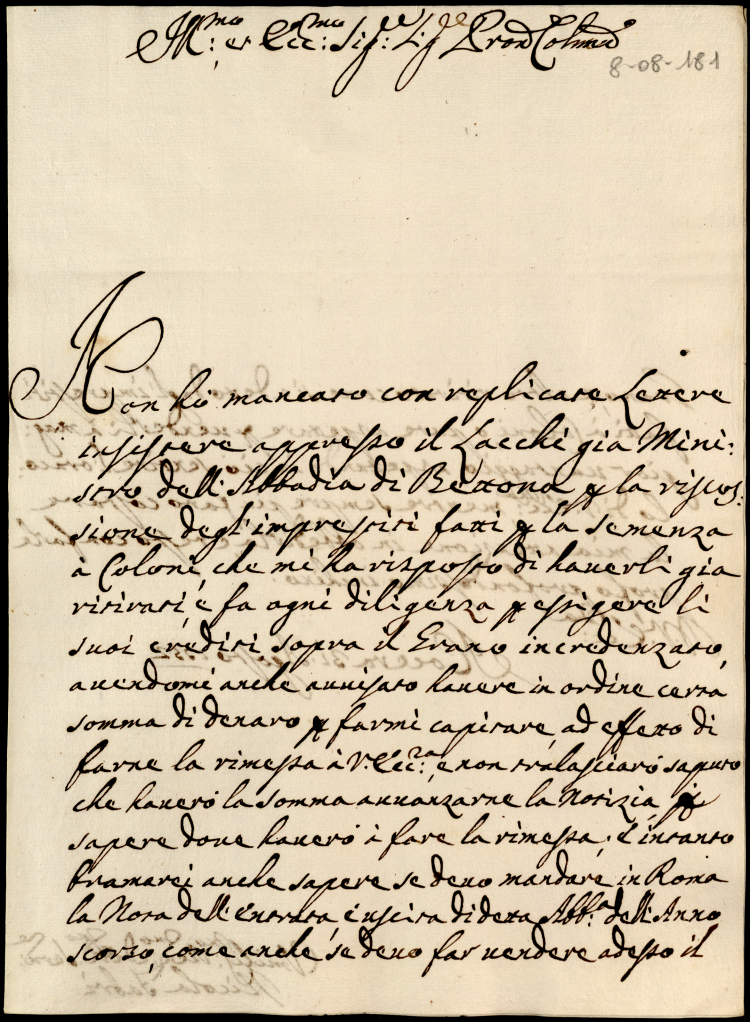 Ill.mo et Ecc.mo Sig.re Sig.re Pron Colmo
8-08-181
Non hò mancato con replicate Lettere
insistere appresso il Lacchi già Mini:
stro dell'Abbadia di Bettona p la riscos:
sione degl'imprestiti fatti p la semenza
à Coloni, che mi ha risposto di hauerli già
ritirati, e fa ogni diligenza p essigere li
suoi crediti sopra il Grano incredenzato,
auendomi anche auuisato hauere in ordine certa
somma di denaro p farmi capitare, ad effetto di
farne la rimessa à V. Ecc.za, e non tralasciarò saputo
che hauerò la somma auuanzarne la Notizia p
sapere doue hauerò à fare la rimessa; e intanto
bramarei anche sapere se deuo mandare in Roma
la Nota dell'entrata, e uscita di detta Abb.a dell'Anno
scorso, come anche se deuo far uendere adesso il